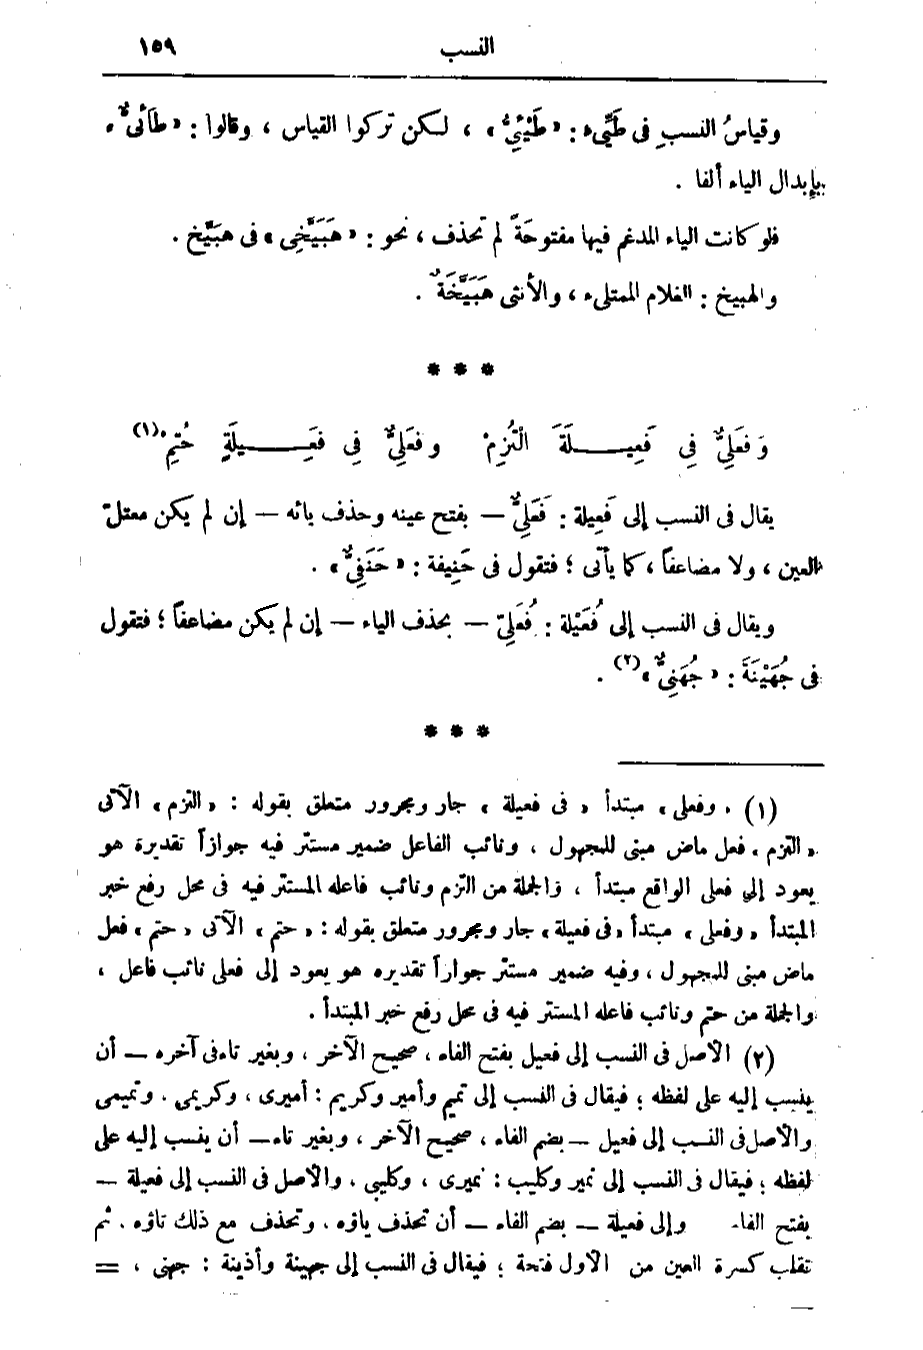 النسب ١٥٩
وقياسُ النسبِ فى طَيِّىء : «طَيْئِىٌّ» ، لكن تركوا القياس ، وقالوا : «طَائىٌّ» .
بإبدال الياء ألفا .
فلو كانت الياء المدغم فيها مفتوحَةً لم تحذف ، نحو : «هَبَيَّخِى» فى هبَيَّخ .
والهبيخ : الغلام الممتلىء ، والأنثى هَبَيَّخَةٌ .
* * *
وَفَعَلِىٌّ فِى فَعِيلَةَ الْتُزِمْ وفُعَلِىٌّ فِى فُعَيْلَةٍ حُتِمْ (١)
يقال فى النسب إلى فَعِيلة : فَعَلِىٌّ — بفتح عينه وحذف يائه — إن لم يكن معتلّ
العين ، ولا مضاعفاً ، كما يأتى ؛ فتقول فى حَنِيفة : «حَنَفِىٌّ» .
ويقال فى النسب إلى فُعَيْلة : فُعَلِىّ — بحذف الياء — إن لم يكن مضاعفاً ؛ فتقول
فى جُهَيْنَةَ : «جُهَنِىٌّ» (٢) .
* * *
(١) «وفعلى» مبتدأ «فى فعيلة» جار ومجرور متعلق بقوله : «التزم» الآتى
«التزم» فعل ماض مبنى للمجهول ، ونائب الفاعل ضمير مستتر فيه جوازاً تقديرة هو
يعود إلى فعلى الواقع مبتدأ ، والجملة من التزم ونائب فاعله المستتر فيه فى محل رفع خبر
المبتدأ «وفعلى» مبتدأ «فى فعيلة» جار ومجرور متعلق بقوله : «حتم» الآتى «حتم» فعل
ماض مبنى للمجهول ، وفيه ضمير مستتر جوازاً تقديره هو يعود إلى فعلى نائب فاعل ،
والجملة من حتم ونائب فاعله المستتر فيه فى محل رفع خبر المبتدأ .
(٢) الأصل فى النسب إلى فعيل بفتح الفاء ، صحيح الآخر ، وبغير تاء فى آخره — أن
ينسب إليه على لفظه ؛ فيقال فى النسب إلى تميم وأمير وكريم : أميرى ، وكريمى . وتميمى
والأصل فى النسب إلى فعيل — بضم الفاء ، صحيح الآخر ، وبغير تاء — أن ينسب إليه على
لفظه ؛ فيقال فى النسب إلى نمير وكليب : نميرى ، وكليبى . والأصل فى النسب إلى فعيلة —
بفتح الفاء وإلى فعيلة — بضم الفاء — أن تحذف ياؤه . وتحذف مع ذلك تاؤه . ثم
تقلب كسرة العين من الأول فتحة ؛ فيقال فى النسب إلى جهينة وأذينة : جهنى ، =